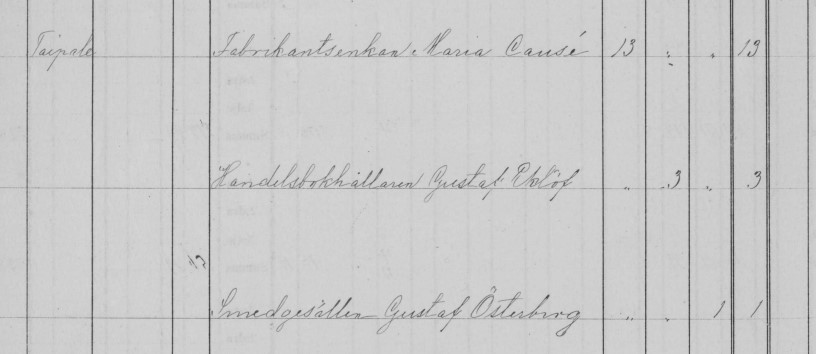 Taipale Fabrikantsenkan Maria Causé 13 " " 13
Handelsbokhållaren Gustaf Eklöf " 3 " 3
Smedgesällen Gustaf Österberg " " 1 1